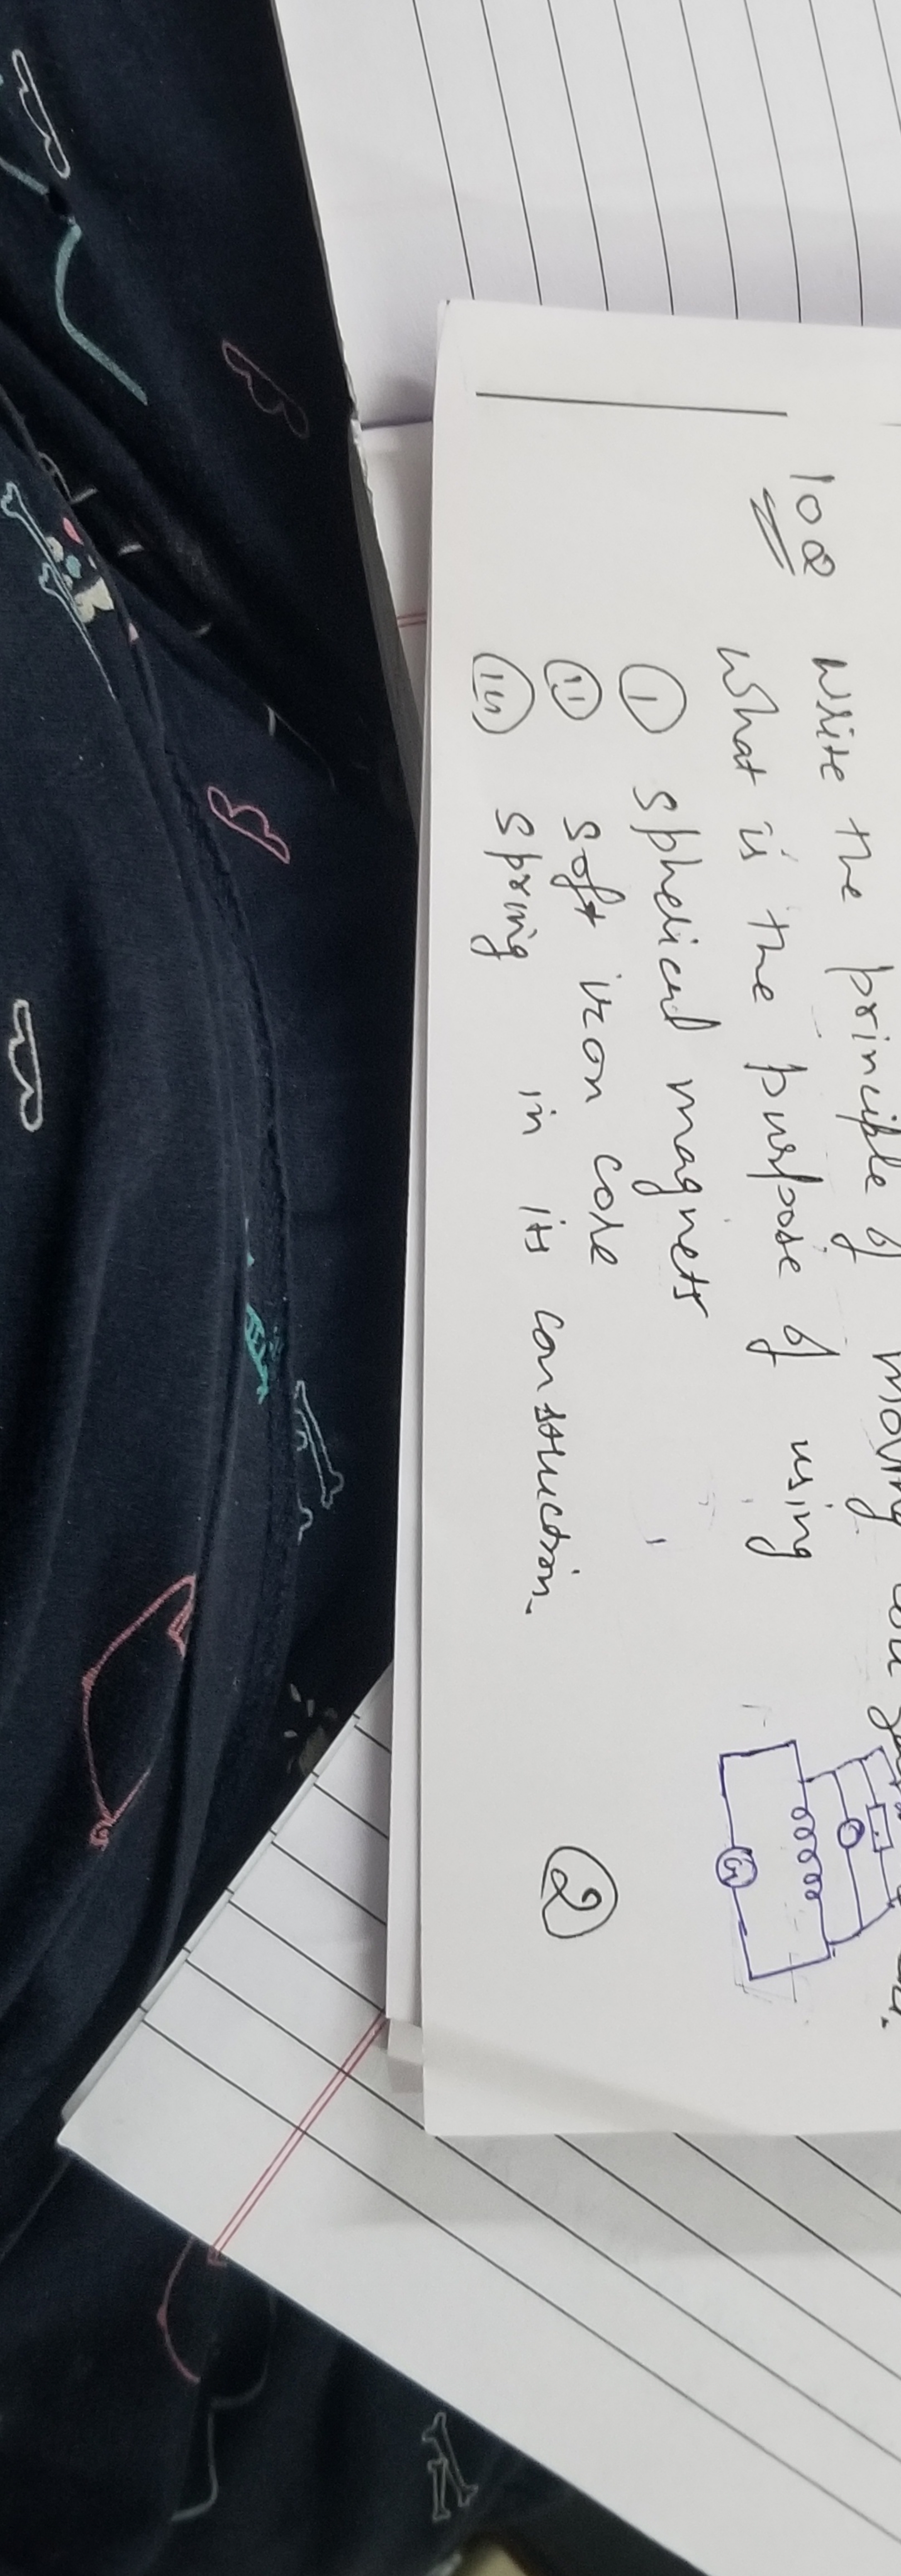 108 Write the principle of moving coil
What is the purpose of using
(i) spherical magnets
(ii) soft iron core
(iii) spring in its construction.
(2)
G